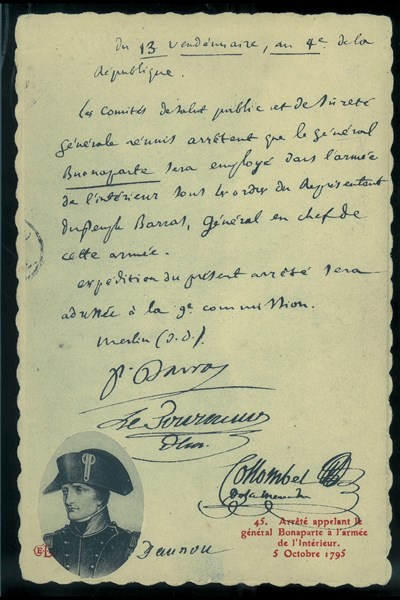 Du 13 vendémiaire, an 4e de la
République.
Les Comités de Salut public et de Sureté
générale réunis arrêtent que le général
Buonaparte sera employé dans l'armée
de l'intérieur sous les ordres du Représentant
du peuple Barras, général en chef de
cette armée.
expédition du présent arrêté sera
adressée à la 9e commission.
Merlin (d.d).
P. Barras
Le Tourneur
Collombel
Daunou
45. Arrêté appelant le
général Bonaparte à l'armée
de l'Intérieur.
5 Octobre 1795